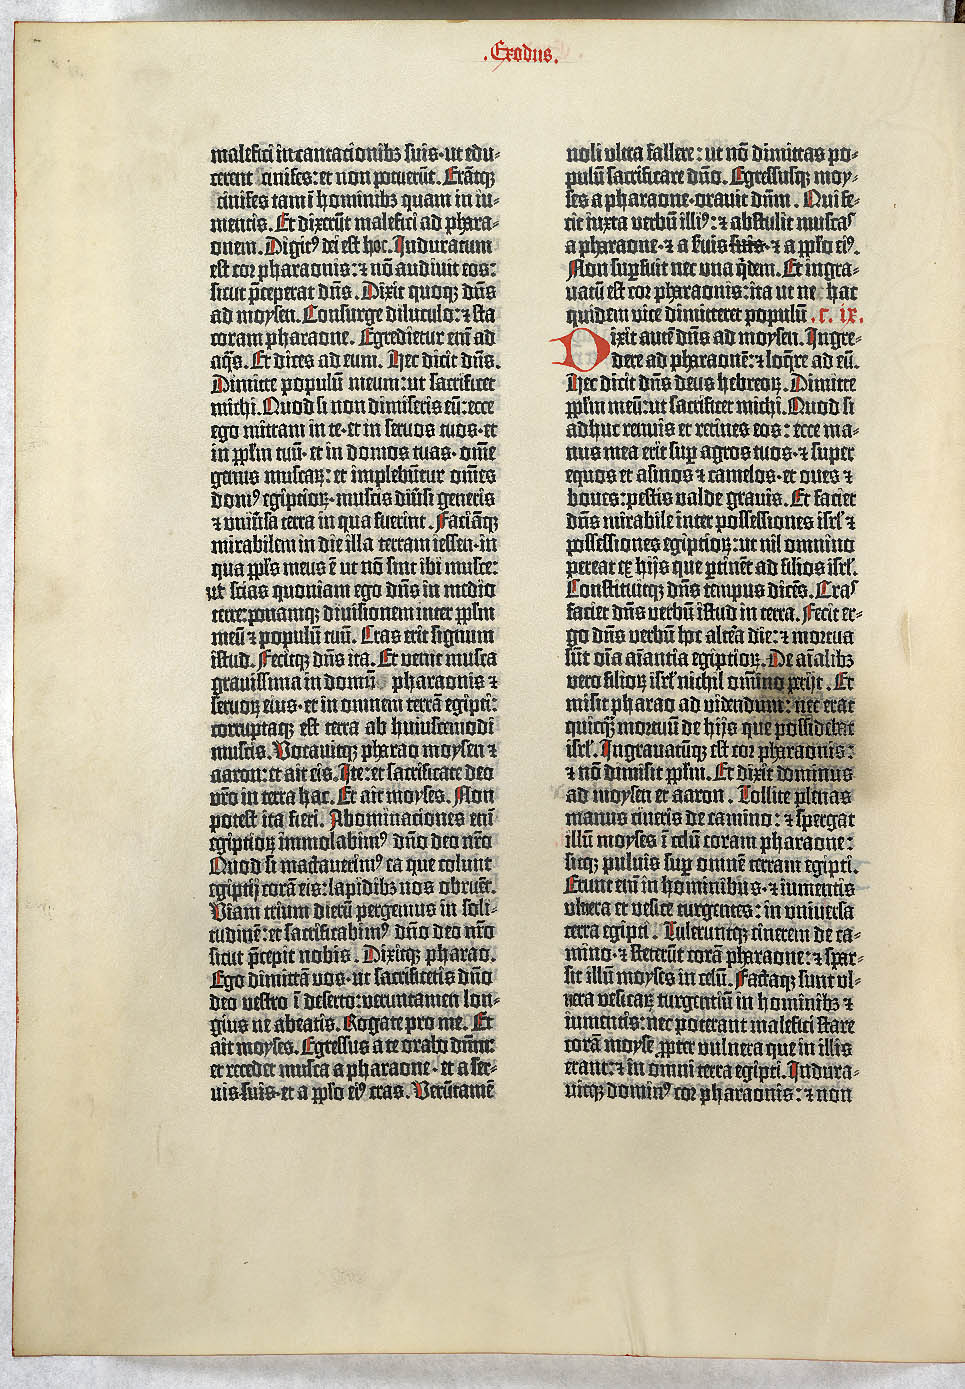 .Exodus.
malefici incantacionibꝫ suis·ut edu-
cerent cinifes: et non potuerūt. Erātqꝫ
cinifes tam ī hominibꝫ quam in iu-
mentis. Et dixerūt malefici ad phara-
onem. Digitꝰ dei est hoc. Induratum
est cor pharaonis: ⁊ nō audivit eos:
sicut p̄ceperat dn̄s. Dixit quoqꝫ dn̄s
ad moysen. Consurge diluculo: ⁊ sta
coram pharaone. Egredietur em̄ ad
aq̄s. Et dices ad eum. Hec dicit dn̄s.
Dimitte populū meum: ut sacrificet
michi. Quod si non dimiseris eū: ecce
ego mittam in te·et in servos tuos·et
in pplm̄ tuū·et in domos tuas·om̄e
genus muscaꝝ: et implebūtur om̄es
domꝰ egiptioꝝ·muscis diūsi generis
⁊ uniūsa terra in qua fuerint. Faciāqꝫ
mirabilem in die illa terram iessen·in
qua ppls̄ meus ē ut nō sint ibi musce:
ut scias quoniam ego dn̄s in medio
terre: ponamqꝫ divisionem inter pplm̄
meū ⁊ populū tuū. Cras erit signum
istud. Fecitqꝫ dn̄s ita. Et venit musca
gravissima in domū pharaonis ⁊
servoꝝ eius·et in omnem terrā egipti:
corruptaqꝫ est terra ab huiuscemodi
muscis. Vocavitqꝫ pharao moysen ⁊
aaron: et ait eis. Ite: et sacrificate deo
vr̄o in terra hac. Et ait moyses. Non
potest ita fieri. Abominaciones em̄
egiptioꝝ immolabimꝰ dn̄o deo nr̄o
Quod si mactaverimꝰ ea que colunt
egiptij corā eis: lapidibꝫ nos obruēt.
Viam trium dierū pergemus in soli-
tudinē: et sacrificabimꝰ dn̄o deo nr̄o
sicut p̄cepit nobis. Dixitqꝫ pharao.
Ego dimittā vos·ut sacrificetis dn̄o
deo vestro ī deserto: veruntamen lon-
gius ne abeatis. Rogate pro me. Et
ait moyses. Egressus a te orabo dn̄m:
et recedet musca a pharaone·et a ser-
vis suis·et a pplo eiꝰ cras. Verūtamē
noli ultra fallere: ut nō dimittas po-
pulū sacrificare dn̄o. Egressusqꝫ moy-
ses a pharaone·oravit dn̄m. Qui fe-
cit iuxta verbū illiꝰ: ⁊ abstulit muscas
a pharaone·⁊ a suis suis·⁊ a pplo eiꝰ.
Non supfuit nec una q̄dem. Et ingra-
vatū est cor pharaonis: ita ut nec hac
quidem vice dimitteret populū .c. ix.
Dixit autē dn̄s ad moysen. Ingre-
dere ad pharaonē: ⁊ loq̄re ad eū.
Hec dicit dn̄s deus hebreoꝝ. Dimitte
pplm̄ meū: ut sacrificet michi. Quod si
adhuc renuis et retines eos: ecce ma-
nus mea erit sup agros tuos·⁊ super
equos et asinos ⁊ camelos·et oves ⁊
boves: pestis valde gravis. Et faciet
dn̄s mirabile inter possessiones isrl̄ ⁊
possessiones egiptioꝝ: ut nil omnino
pereat ex hijs que ptinēt ad filios isrl̄.
Constituitqꝫ dn̄s tempus dicēs. Cras
faciet dn̄s verbū istud in terra. Fecit er-
go dn̄s verbū hoc altēa die: ⁊ mortua
sūt oīa aīantia egiptioꝝ. De aīalibꝫ
vero filioꝝ isrl̄ nichil om̄ino perijt. Et
misit pharao ad videndum: nec erat
quicq̄ mortuū de hijs que possidebat
isrl̄. Ingravatūqꝫ est cor pharaonis:
⁊ nō dimisit pplm̄. Et dixit dominus
ad moysen et aaron. Tollite plenas
manus cineris de camino: ⁊ spergat
illū moyses ī celū coram pharaone:
sitqꝫ pulvis sup omnē terram egipti.
Erunt em̄ in hominibus·⁊ iumentis
ulcera et vesice turgentes: in universa
terra egipti. Tuleruntqꝫ cinerem de ca-
mino·⁊ steterūt corā pharaone: ⁊ spar-
sit illū moyses in celū. Factaqꝫ sunt ul-
cera vesicaꝝ turgentiū in hominibꝫ ⁊
iumentis: nec poterant malefici stare
corā moyse ppter vulnera que in illis
erant: ⁊ in omni terra egipti. Indura-
vitqꝫ dominꝰ cor pharaonis: ⁊ non